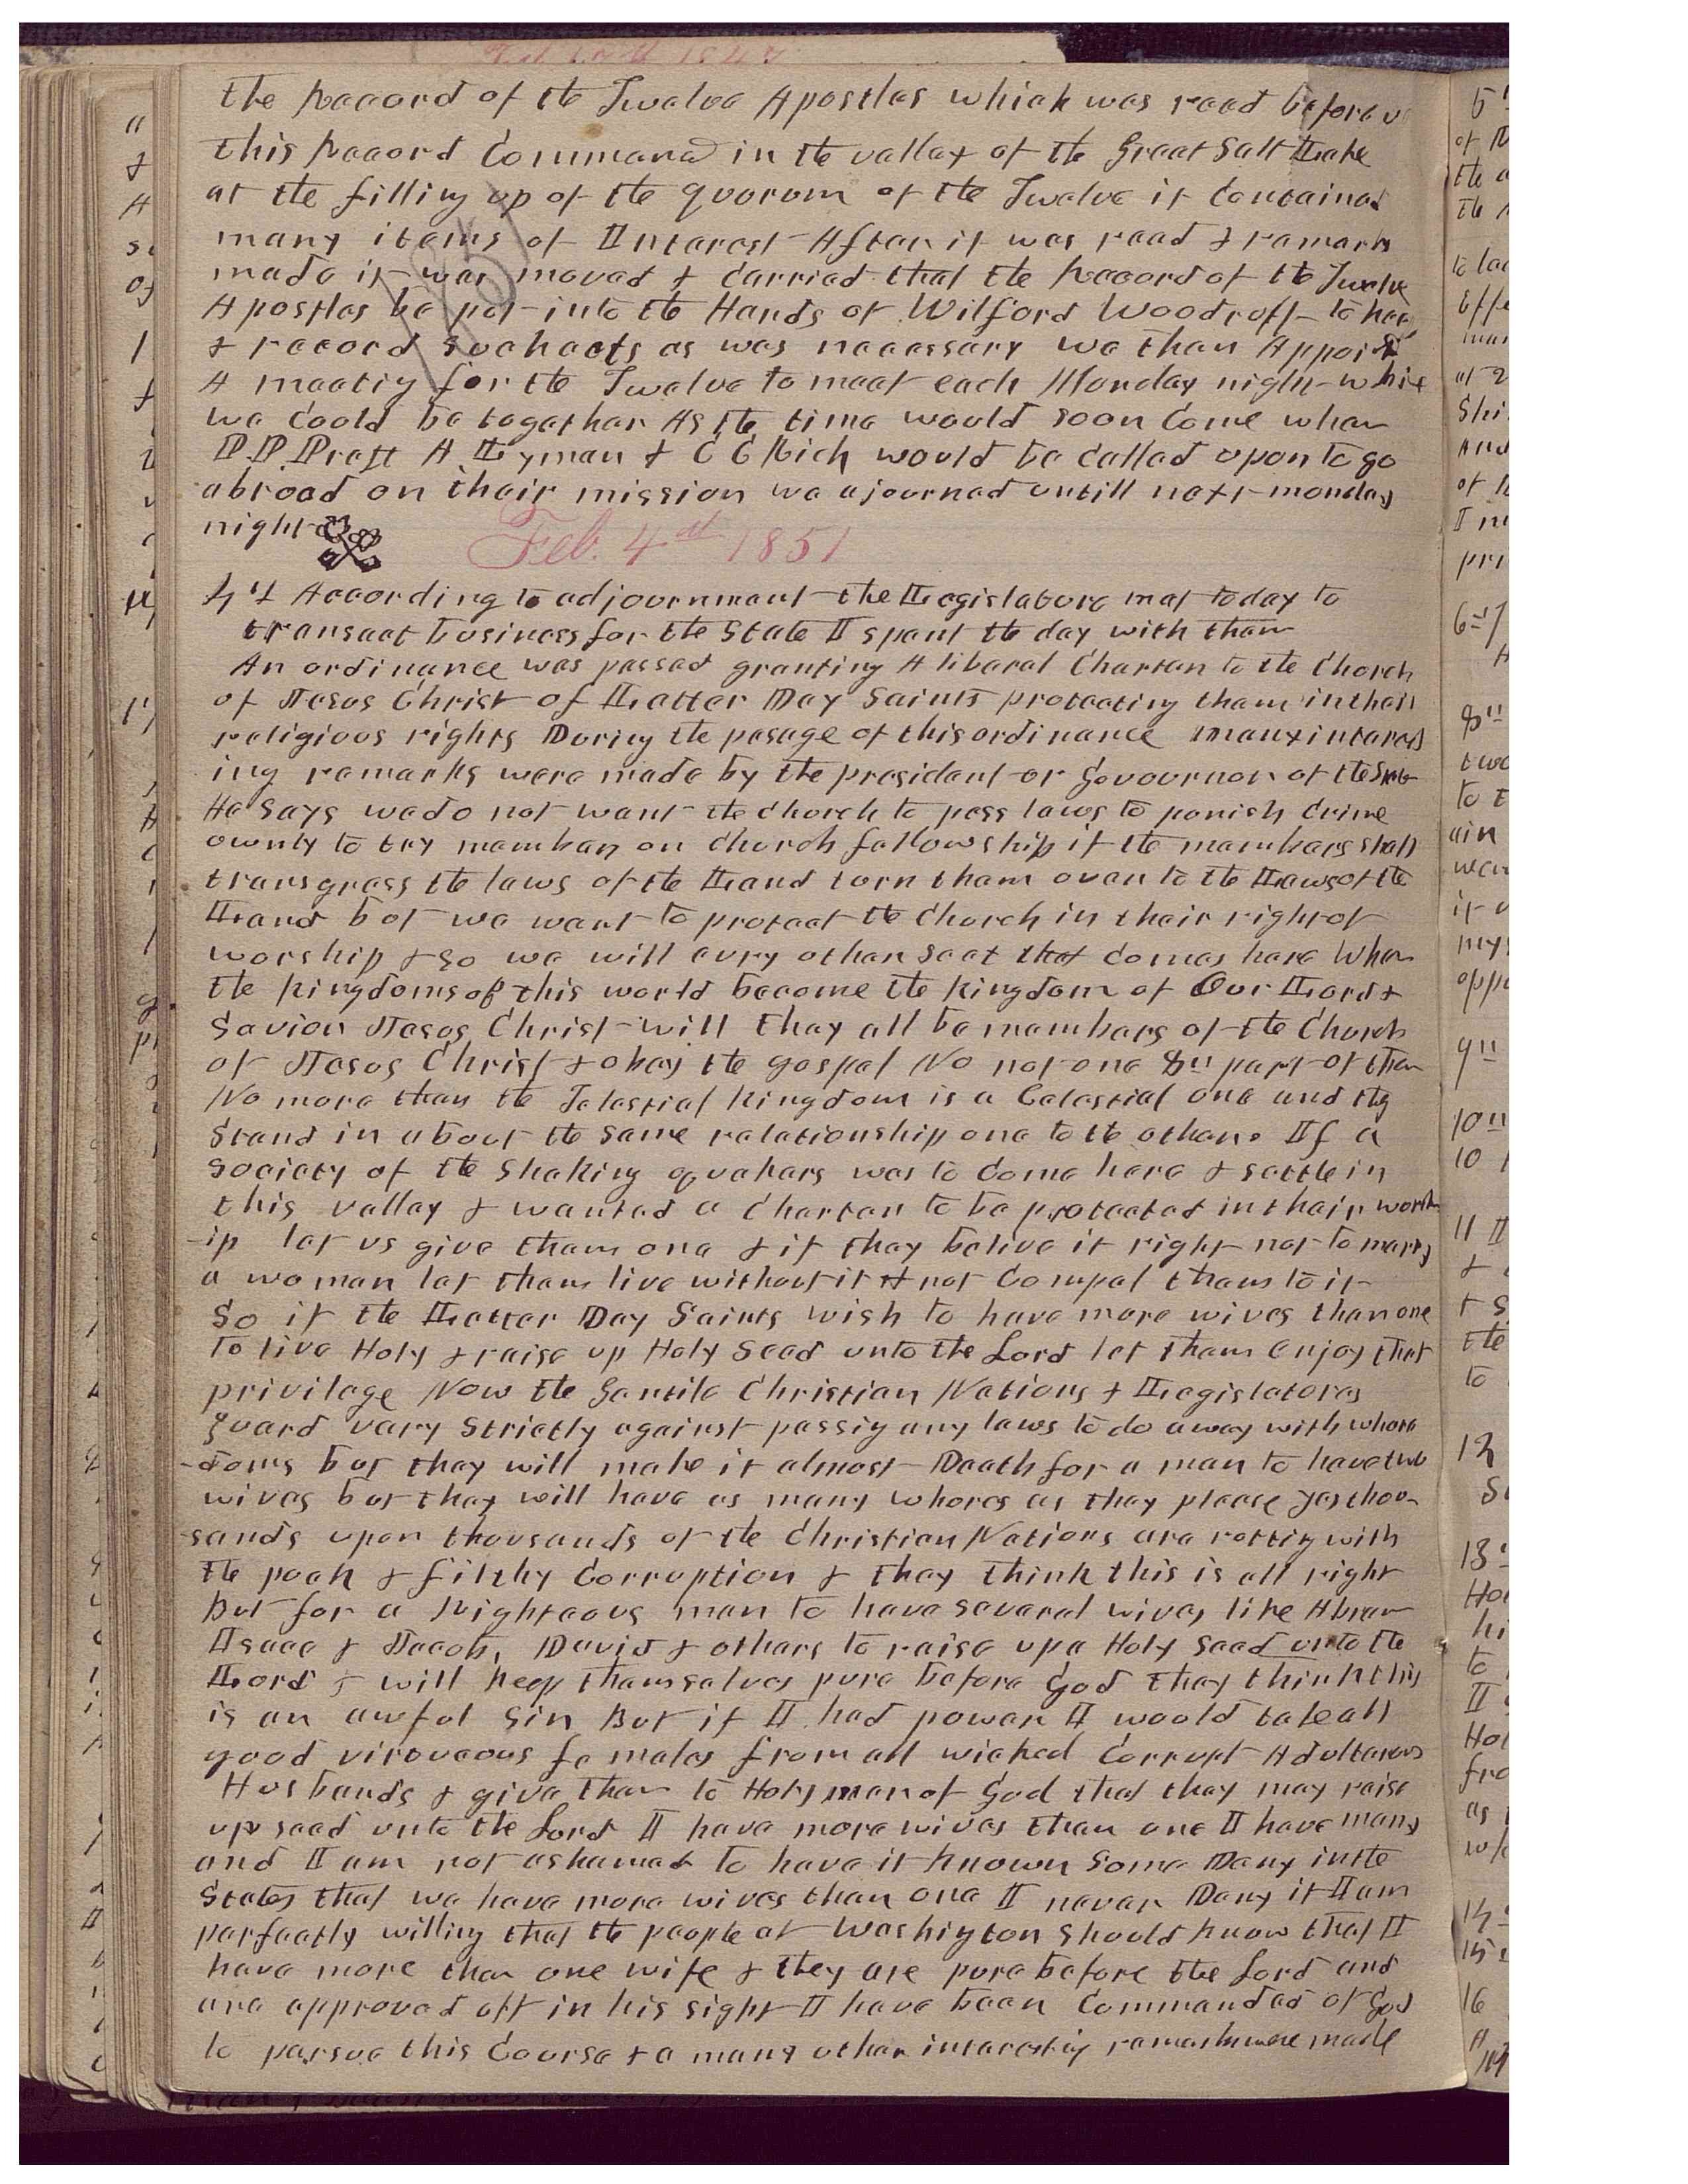 the Record of the Twelve Apostles which was read before us
this Record Commenced in the valley of the Great Salt Lake
at the filling up of the quorum of the Twelve it Contained
many items of Interest After it was read & remarks
made it was moved & Carried that the Record of the Twelve
Apostles be put into the Hands of Wilford Woodruff to keep
& record such acts as was necessary we then Appoint
A meeting for the Twelve to meet each Monday night while
we Could be together As the time would soon Come when
P.P. Pratt A Lyman & C C Rich would be Called upon to go
abroad on their mission we ajourned untill next monday
night
1851
Feb. 4th 1851
4th According to adjournment the Legislature met today to
transact business for the State I spent the day with them
An ordinance was passed granting A liberal Charter to the Church
of Jesus Christ of Latter Day Saints protecting them in their
religious rights During the pasage of this ordinance many interest
ing remarks were made by the president or Govournor of the State
He says we do not want the church to pass laws to punish Crime
ownly to try member on church fellowship if the members shall
transgress the laws of the Land turn them over to the Laws of the
Land but we want to protect the Church in their right of
worship & so we will evry other sect that Comes here When
the kingdoms of this world become the kingdom of Our Lord &
Savior Jesus Christ will they all be members of the Church
of Jesus Christ & obey the gospel No not one 8th part of them
No more than the Telestial kingdom is a Celestial one and they
stand in about the same relationship one to the other. If a
society of the Shaking quakers was to Come here & settle in
this valley & wanted a Charter to be protected in their worsh
-ip let us give them one & if they belive it right not to marry
a woman let them live without it & not Compel them to it
So if the Latter Day Saints wish to have more wives than one
to live Holy & raise up Holy Seed unto the Lord let them enjoy that
privilege Now the Gentile Christian Nations & Legislatores
guard very Strictly against passig any laws to do away with whore
-doms but they will make it almost Death for a man to have two
wives but they will have as many whores as they please yes thou-
-sands upon thousands of the Christian Nations are rottig with
the pock & filthy Corruption & they think this is all right
But for a Righteous man to have several wives like Abram
Isaac & Jacob, David & others to raise up a Holy seed unto the
Lord & will keep themselves pure before God they think this
is an awful sin But if I had power I would take all
good virtueous females from all wicked Corrupt Adulterous
Husbands & give them to Holy men of God that they may raise
up seed unto the Lord I have more wives than one I have many
and I am not ashamed to have it known Some Deny in the
States that we have more wives than one I never Deny it I am
perfectly willing that the people at Washington Should know that I
have more than one wife & they are pure before the Lord and
are approved off in his sight I have been Commanded of God
to persue this Course & a many other interestig remarks were made